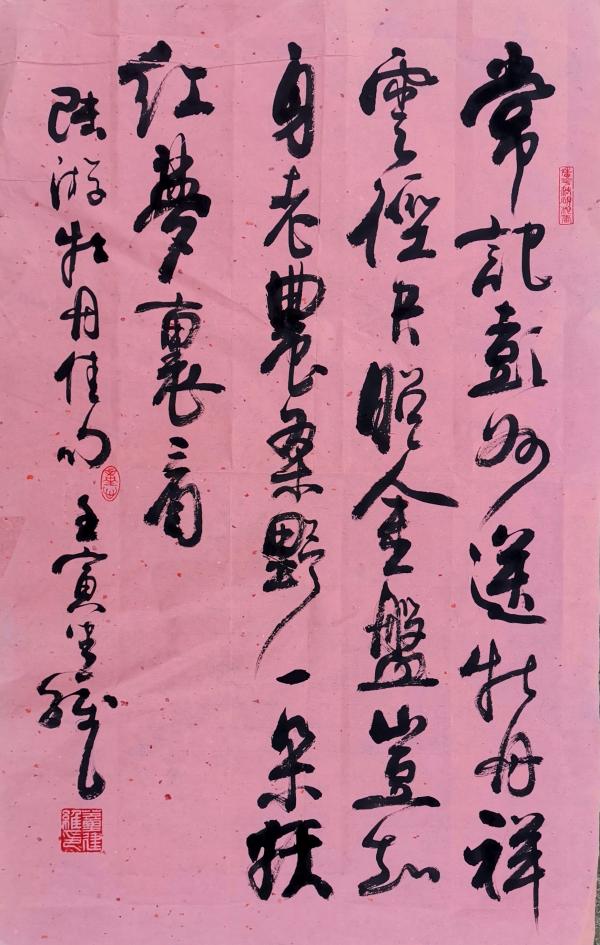 常記彭州送牡丹祥
雲徑尺照金盤豈知
身老農桑野一朵妖
紅夢裏看
陸游牡丹佳句 壬寅